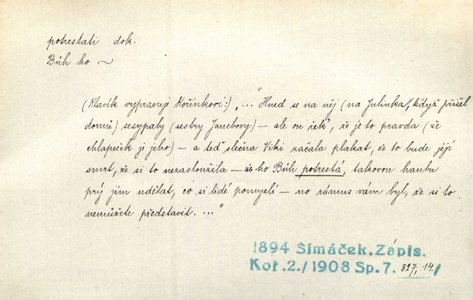 potrestati dok.
Bůh ho ~
(Klavík vypravuje Kořínkovi:), „... Hned se na něj (na Julinka, když přišel
domů) sesypaly (sestry Janebovy) — ale on řek', že je to pravda (že
chlapeček je jeho) — a teď slečna Viki začala plakat, že to bude její
smrt, že si to nezasloužila — že ho Bůh potrestá, takovou hanbu
prý jim udělat, co si lidé pomyslí — no rámus vám byl, že si to
nemůžete představit. ..."
1894 Šimáček, Zápis.
Koř.2./1908 Sp.7. 827, 14.